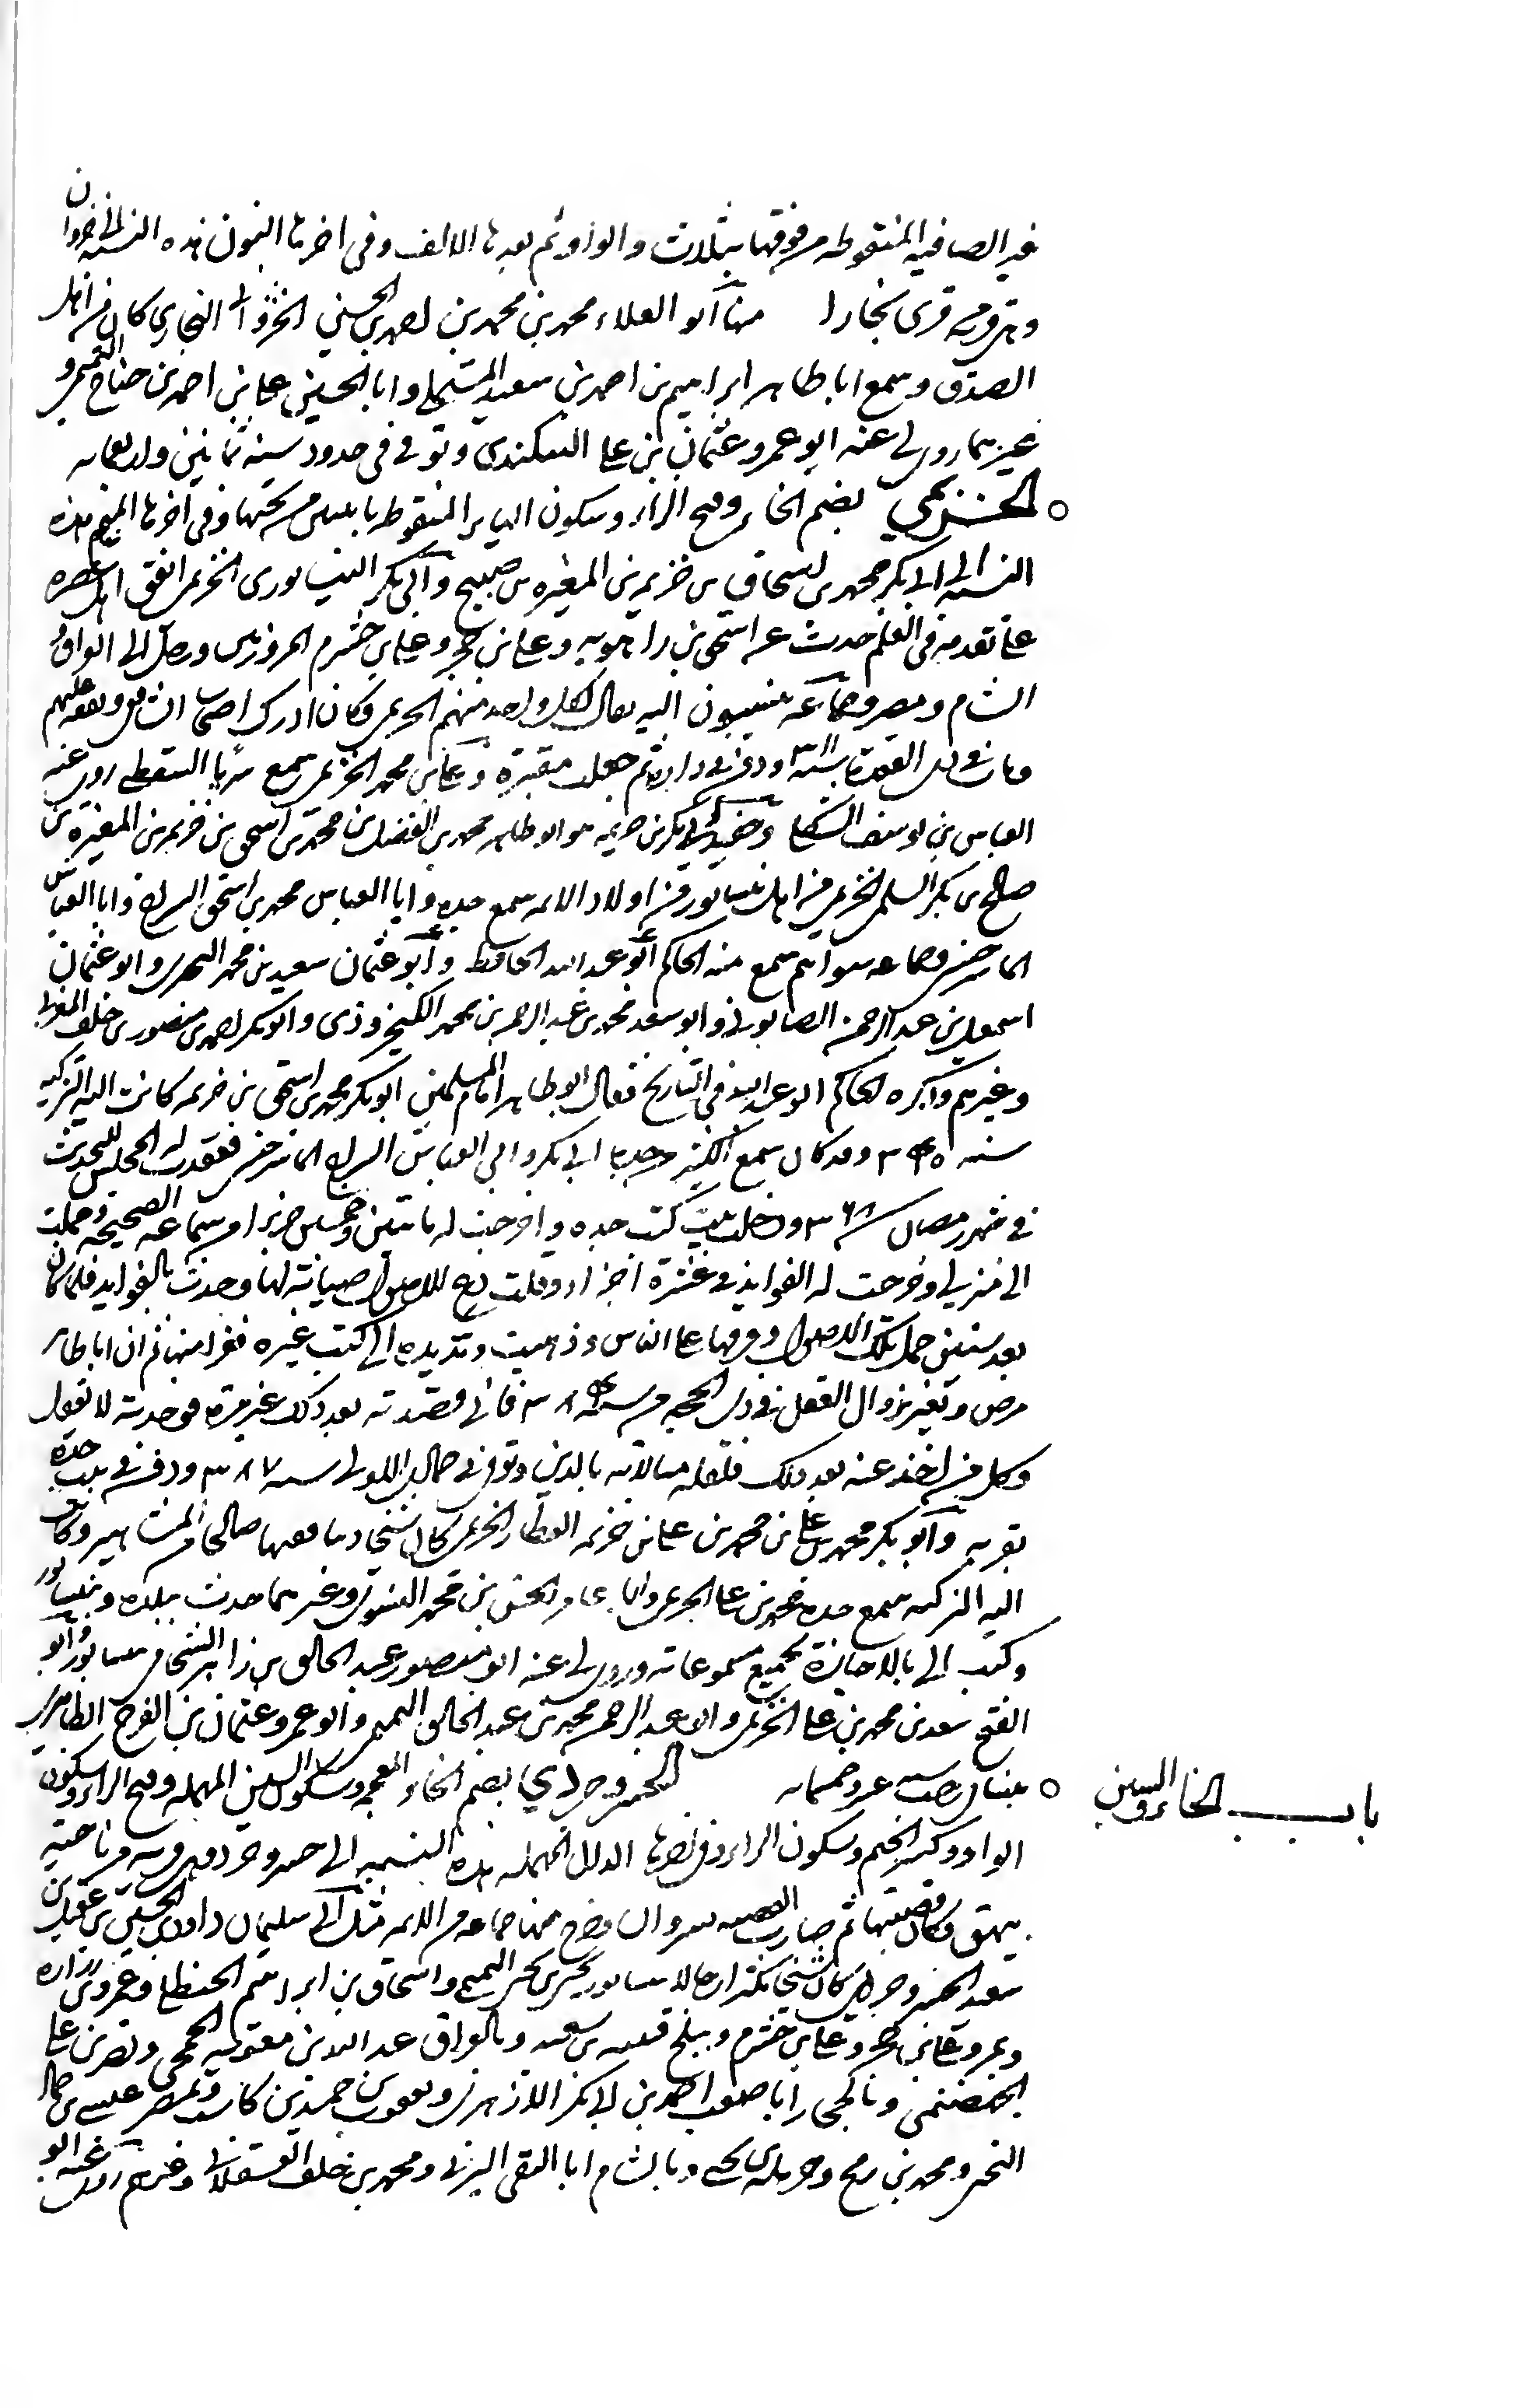 غير الصافية المنقوطة من فوقها بثلاث والواو ثم بعدها الالف وفي اخرها النون هذه النسبة الى خزوان
وهي قرية من قرى بخارا منها ابو العلاء محمد بن محمد بن احمد بن الحسني الخزواني البخاري كان من اهل
الصدق وسمع ابا طاهر ابراهيم بن احمد بن سعيد المستملي وابا الحسين علي بن احمد بن جناح التميمي و
غيرهما روى عنه ابو عمرو عثمان بن علي البيكندي وتوفي في حدود سنة ثمانين واربعمايه
الخزيمي بضم الخاء وفتح الزاء وسكون الياء المنقوطة باثنتين من تحتها وفي اخرها الميم هذه
النسبة الى ابي بكر محمد بن اسحاق بن خزيمة بن المغيرة بن صالح بن بكر النيسابوري الخزيمي اتفق اهل عصره
على تقدمه في العلم حدث عن اسحق بن راهويه وعلي بن حجر وعلي بن خشرم المروزيين ورحل الى العراق و
الشام ومصر وجماعة ينسبون اليه يقال لكل واحد منهم الخزيمي وكان ادرك اصحاب الشافعي وتفقه عليهم
ومات في ذي القعدة سنة ٣١١ ودفن في داره ثم جعلت مقبرة وعلي بن محمد الخزيمي سمع سريا السقطي روى عنه
العباس بن يوسف الشكلي وحفيد ابي بكر بن خزيمه هو ابو طاهر محمد بن الفضل بن محمد بن اسحق بن خزيمة بن المغيرة بن
صالح بن بكر السلمي الخزيمي من اهل نيسابور من اولاد الائمه سمع جده وابا العباس محمد بن اسحق السراج وابا العباس
الماسرجسي وجماعه سواهم سمع منه الحاكم ابو عبد الله الحافظ وابو عثمان سعيد بن محمد البحيري وابو عثمان
اسمعيل بن عبد الرحمن الصابوني وابو سعد محمد بن عبد الرحمن بن محمد الكنجروذي وابو بكر احمد بن منصور بن خلف المغربي
وغيرهم وذكره الحاكم ابو عبد الله في التاريخ فقال ابو طاهر بن امام المسلمين ابو بكر محمد بن اسحق بن خزيمه كانت اليه التزكيه
سنه ٣٤٥ وقد كان سمع الكثير من جده ابي بكر وابي العباس السراج والماسرجسي فعقدت له المجلس للتحديث
في شهر رمضان سنة ٣٦٨ ودخلت بيت كتب جده واخرجت له مائتين وخمسين جزءا من سماعه الصحيحه وحملت
الى منزلي وخرجت له الفوايد في عشرة اجزاء وقلت دع الاصول صيانة لها وحدث بالفوايد فلما كان
بعد سنتين حمل تلك الاصول وفرقها على الناس وذهبت ومد يده الى كتب غيره فقرا منها ثم ان ابا طاهر
مرض وتغير بزوال العقل في ذي الحجه من سنة ٣٨٤ فاني قصدته بعد ذلك غير مرة فوجدته لا يعقل
وكل من اخذ عنه بعد ذلك فلقله مبالاته بالدين وتوفي في جمادى الاولى سنه ٣٨٧ ودفن في بيت جده
بقربه وابو بكر محمد بن علي بن محمد بن علي بن خزيمه العطار الخزيمي كان شيخا دينا فقيها صالحا من المشاهير وكانت
اليه التزكيه سمع جده محمد بن علي الخزيمي وابا عامر الحسن بن محمد النسوي وغيرهما حدث ببلده ونيسابور
وكتب الي بالاجازة بجميع مسموعاته وروى لي عنه ابو منصور عبد الخالق بن زاهر الشحامي بنيسابور وابو
الفتح سعد بن محمد بن علي الخزيمي وابو عبد الرحمن محمد بن عبد الخالق التميمي وابو عمرو عثمان بن الفرج الطاهري
باب الخاء والسين
الخسروجردي بضم الخاء المعجمه وسكون السين المهمله وفتح الراء وسكون
الواو وكسر الجيم وسكون الراء وفي اخرها الدال المهمله هذه النسبه الى خسروجرد وهي قريه من ناحيه
بيهق وكانت قصبتها ثم صارت القصبه سبزوار خرج منها جماعه من الائمه مثل ابي سليمان داود بن الحسين بن عقيل بن
سعيد الخسروجردي كان شيخا مكثرا رحالا بنيسابور يحيى بن يحيى التميمي واسحاق بن ابراهيم الحنظلي وعمرو بن زراره
وبمرو علي بن حجر وعلي بن خشرم وببلخ قتيبه بن سعيد وبالعراق عبد الله بن معويه الجمحي ونصر بن علي
الجهضمي وبالحجاز ابا مصعب احمد بن ابي بكر الزهري ويعقوب بن حميد بن كاسب وبمصر عيسى بن حماد
التجيبي ومحمد بن رمح وحرملة بن يحيى وبالشام ابا التقي اليزني ومحمد بن خلف العسقلاني وغيرهم روى عنه ابو